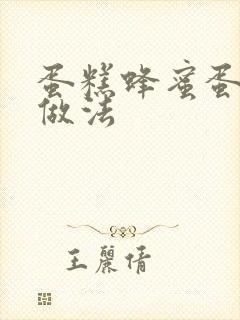 蛋糕蜂蜜蛋
做法
王麗倩